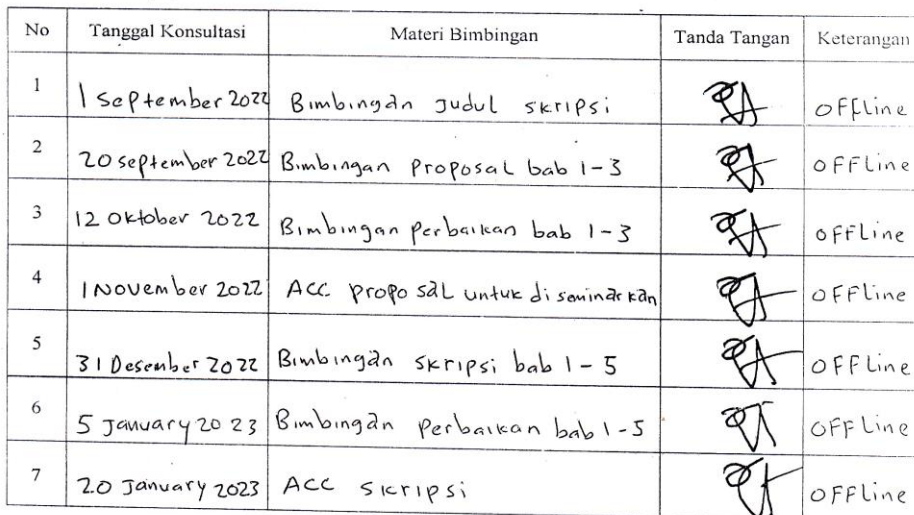 No Tanggal Konsultasi Materi Bimbingan Tanda Tangan Keterangan
1 1 September 2022 Bimbingan Judul skripsi offline
2 20 september 2022 Bimbingan Proposal bab 1-3 offline
3 12 Oktober 2022 Bimbingan perbaikan bab 1-3 offline
4 1 November 2022 ACC proposal untuk di seminarkan offline
5 31 Desember 2022 Bimbingan skripsi bab 1-5 offline
6 5 January 2023 Bimbingan perbaikan bab 1-5 offline
7 20 January 2023 ACC skripsi offline